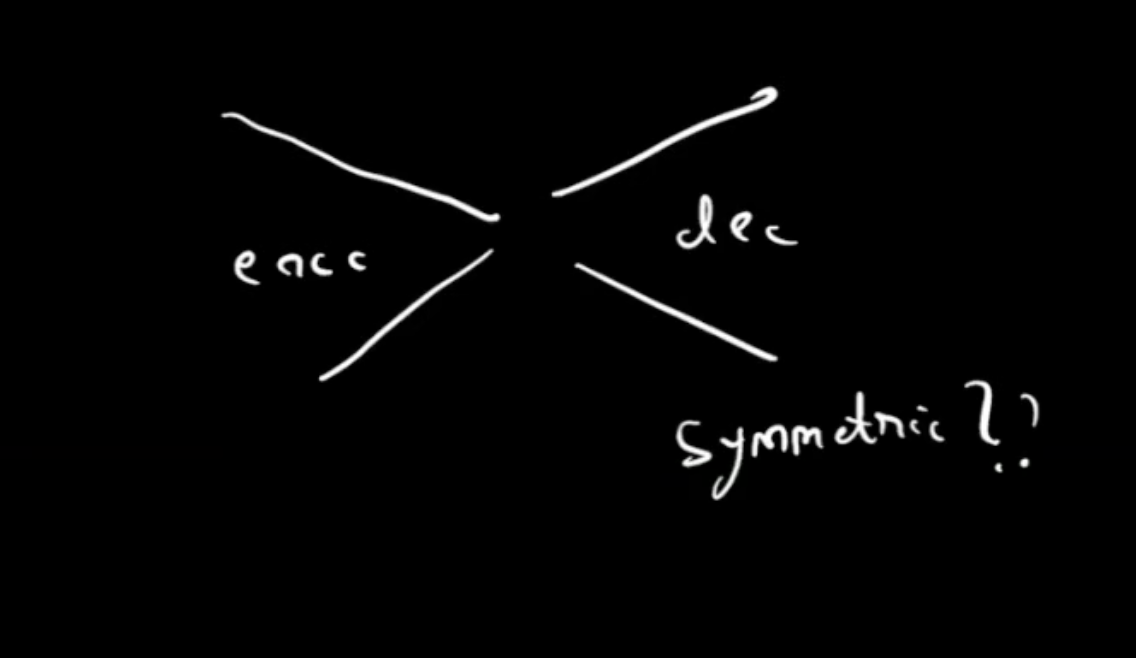 encc
dec
symmetric ??